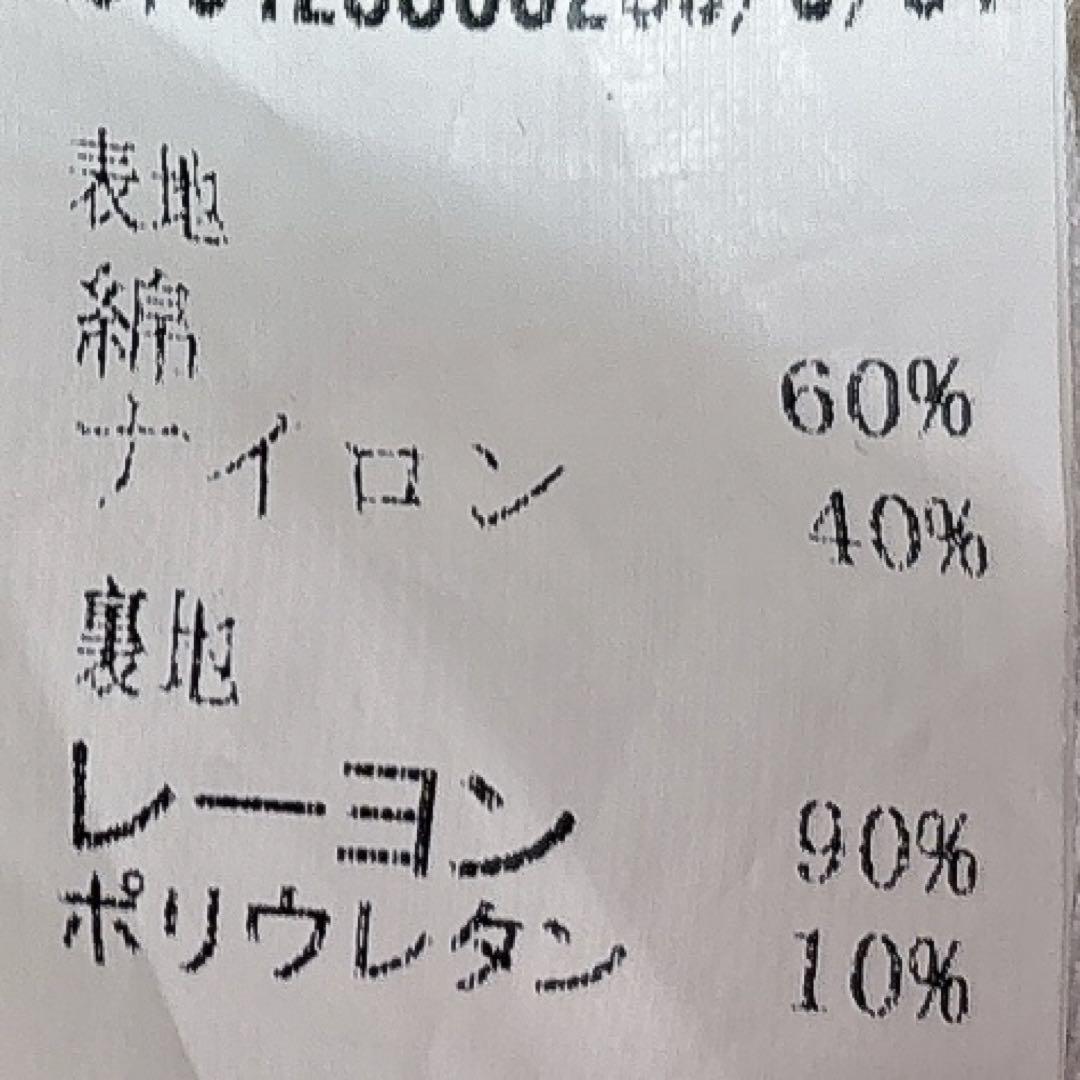 表地
綿 60%
ナイロン 40%
裏地
レーヨン 90%
ポリウレタン 10%